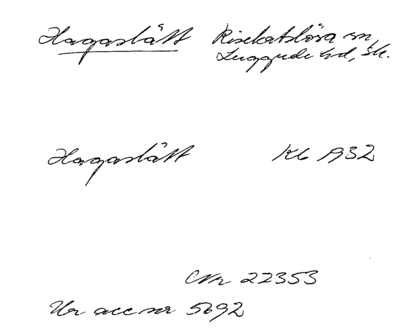 Hagaslätt Risekatslösa sn,
Luggude hd, Sk.
Hagaslätt Kb 1932
CNr 22353
Ur acc nr 5692